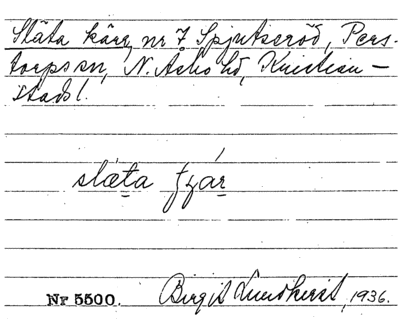 Släta kärr nr 7 Spjutseröd, Pers-
torps sn, N. Åsbo hd, Kristian-
stads l.
slæta ʃɀár
Nr 5500. Birgit Lundkvist, 1936.